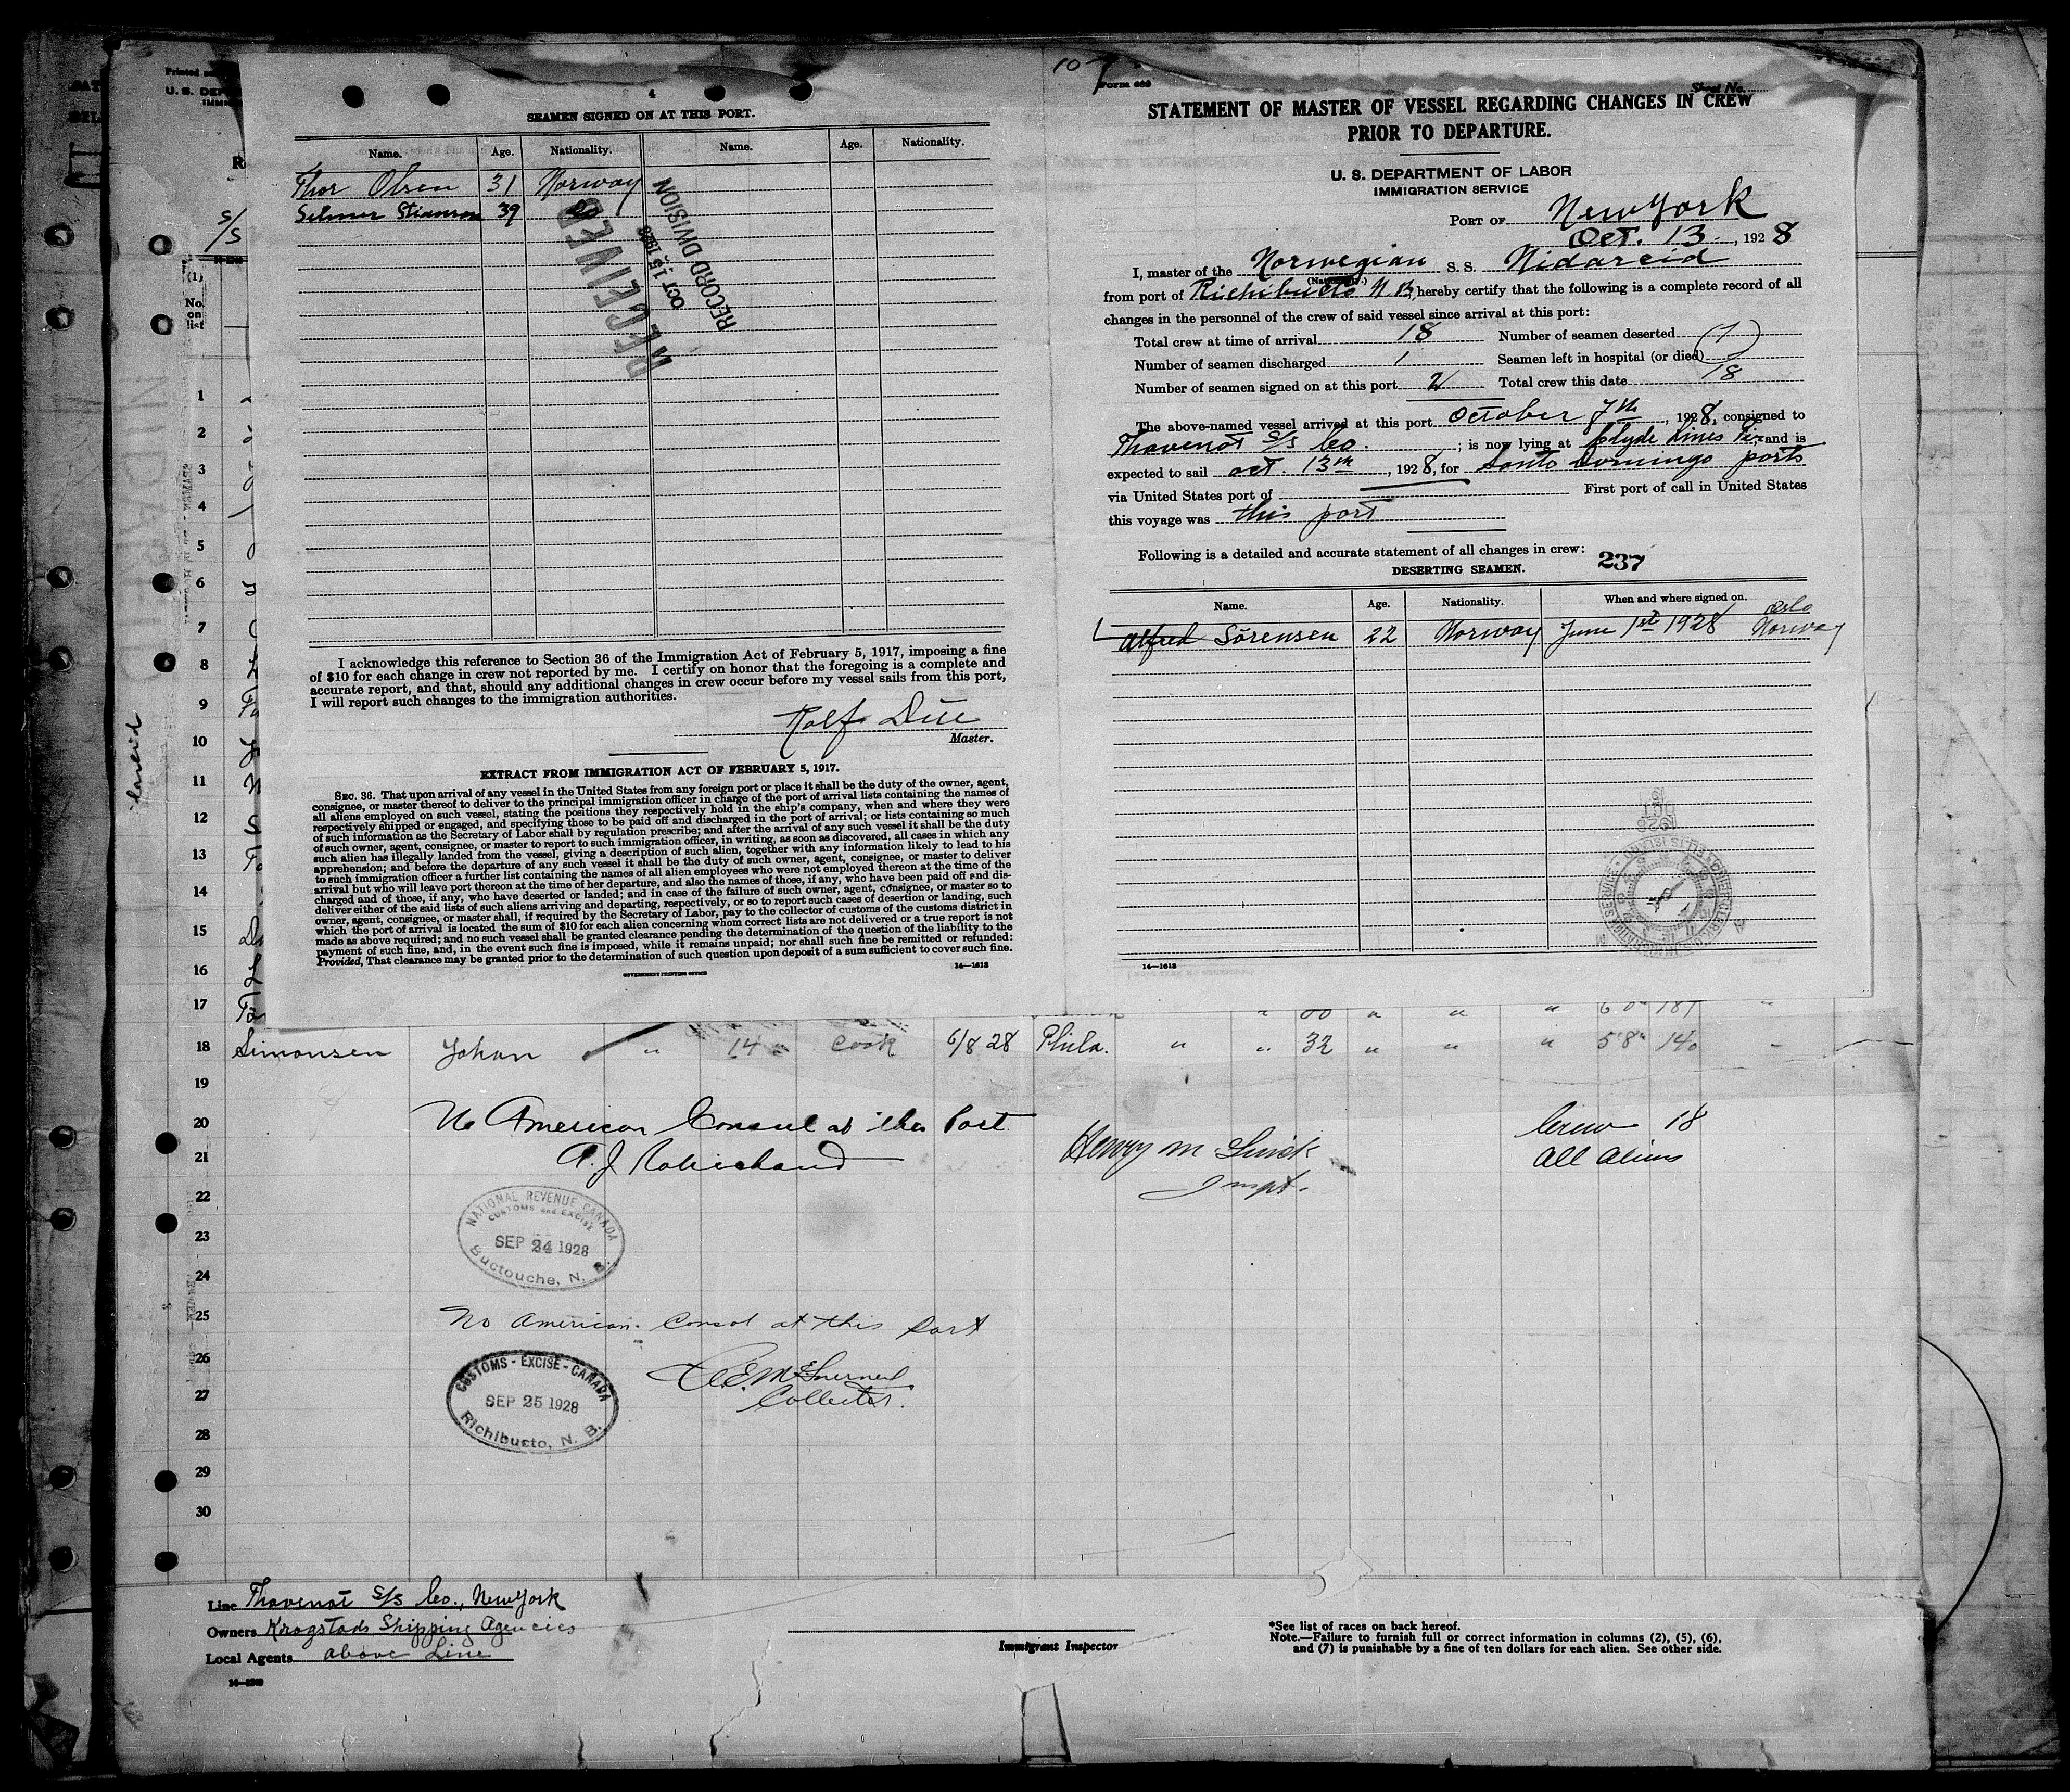 4
SEAMEN SIGNED ON AT THIS PORT.
Name. Age. Nationality. Name. Age. Nationality.
Thor Olsen 31 Norway
Selmer Stianson 39 do
RECEIVED
OCT 15 1928
RECORD DIVISION
I acknowledge this reference to Section 36 of the Immigration Act of February 5, 1917, imposing a fine
of $10 for each change in crew not reported by me. I certify on honor that the foregoing is a complete and
accurate report, and that, should any additional changes in crew occur before my vessel sails from this port,
I will report such changes to the immigration authorities.
Rolf Due
Master.
EXTRACT FROM IMMIGRATION ACT OF FEBRUARY 5, 1917.
SEC. 36. That upon arrival of any vessel in the United States from any foreign port or place it shall be the duty of the owner, agent,
consignee, or master thereof to deliver to the principal immigration officer in charge of the port of arrival lists containing the names of
all aliens employed on such vessel, stating the positions they respectively hold in the ship's company, when and where they were
respectively shipped or engaged, and specifying those to be paid off and discharged in the port of arrival; or lists containing so much
of such information as the Secretary of Labor shall by regulation prescribe; and after the arrival of any such vessel it shall be the duty
of such owner, agent, consignee, or master to report to such immigration officer, in writing, as soon as discovered, all cases in which any
such alien has illegally landed from the vessel, giving a description of such alien, together with any information likely to lead to his
apprehension; and before the departure of any such vessel it shall be the duty of such owner, agent, consignee, or master to deliver
to such immigration officer a further list containing the names of all alien employees who were not employed thereon at the time of the
arrival but who will leave port thereon at the time of her departure, and also the names of those, if any, who have been paid off and dis-
charged and of those, if any, who have deserted or landed; and in case of the failure of such owner, agent, consignee, or master so to
deliver either of the said lists of such aliens arriving and departing, respectively, or so to report such cases of desertion or landing, such
owner, agent, consignee, or master shall, if required by the Secretary of Labor, pay to the collector of customs of the customs district in
which the port of arrival is located the sum of $10 for each alien concerning whom correct lists are not delivered or a true report is not
made as above required; and no such vessel shall be granted clearance pending the determination of the question of the liability to the
payment of such fine, and, in the event such fine is imposed, while it remains unpaid; nor shall such fine be remitted or refunded:
Provided, That clearance may be granted prior to the determination of such question upon deposit of a sum sufficient to cover such fine.
GOVERNMENT PRINTING OFFICE 14—1618
Form 680 Sheet No.
STATEMENT OF MASTER OF VESSEL REGARDING CHANGES IN CREW
PRIOR TO DEPARTURE.
U. S. DEPARTMENT OF LABOR
IMMIGRATION SERVICE
PORT OF New York
Oct. 13, 1928
I, master of the Norwegian S. S. Nidareid
(Nationality.)
from port of Richibucto N.B. hereby certify that the following is a complete record of all
changes in the personnel of the crew of said vessel since arrival at this port:
Total crew at time of arrival 18 Number of seamen deserted (1)
Number of seamen discharged 1 Seamen left in hospital (or died)
Number of seamen signed on at this port 2 Total crew this date 18
The above-named vessel arrived at this port October 7th, 1928, consigned to
Thavenot S/S Co.; is now lying at Clyde Lines Pier, and is
expected to sail Oct. 13th, 1928, for Santo Domingo ports
via United States port of First port of call in United States
this voyage was this port
Following is a detailed and accurate statement of all changes in crew: 237
DESERTING SEAMEN.
Name. Age. Nationality. When and where signed on.
Alfred Sörensen 22 Norway June 1st 1928 Oslo Norway
14—1618
(1)
No. on list
1
2
3
4
5
6
7
8
9
10
11
12
13
14
15
16
17
18 Simonsen Johan " 14 " Cook 6/8 28 Phila. " " 32 " " " 5'8" 140
19
20 No American Consul at this Port Crew 18
21 A. J. Robichaud Henry M All aliens
22
Inspt.
NATIONAL REVENUE CANADA
CUSTOMS and EXCISE
SEP 24 1928
Buctouche, N. B.
23
24
25 No American Consul at this Port
26
CUSTOMS - EXCISE - CANADA
SEP 25 1928
Richibucto, N. B.
27 Collector.
28
29
30
Line Thavenot S/S Co., New York
Owners Krogstads Shipping Agencies
Local Agents above Line
Immigrant Inspector
*See list of races on back hereof.
Note.—Failure to furnish full or correct information in columns (2), (5), (6),
and (7) is punishable by a fine of ten dollars for each alien. See other side.